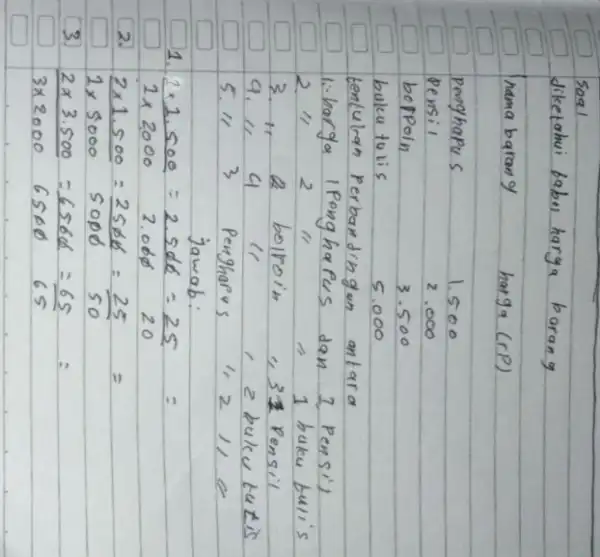 soal
diketahui tabel harga barang
nama barang harga (rp)
penghapus 1.500
pensil 2.000
bolpoin 3.500
buku tulis 5.000
tentukan perbandingan antara
1. harga 1 Penghapus dan 1 pensil
2. " 2 " " 1 buku tulis
3. " 2 bolpoin " 3 Pensil
4. " 4 " " 2 buku tulis
5. " 3 Penghapus " 2 " "
jawab:
1. 1 x 1.500 = 2.500 = 25 =
1 x 2000 2.000 20
2. 2 x 1.500 = 2500 = 25 =
1 x 5000 5000 50
3. 2 x 3.500 = 6500 = 65 =
3 x 2000 6500 65